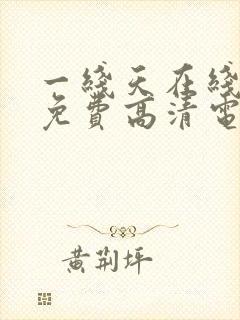 一綫天在綫
免費高清電
黄荆坪